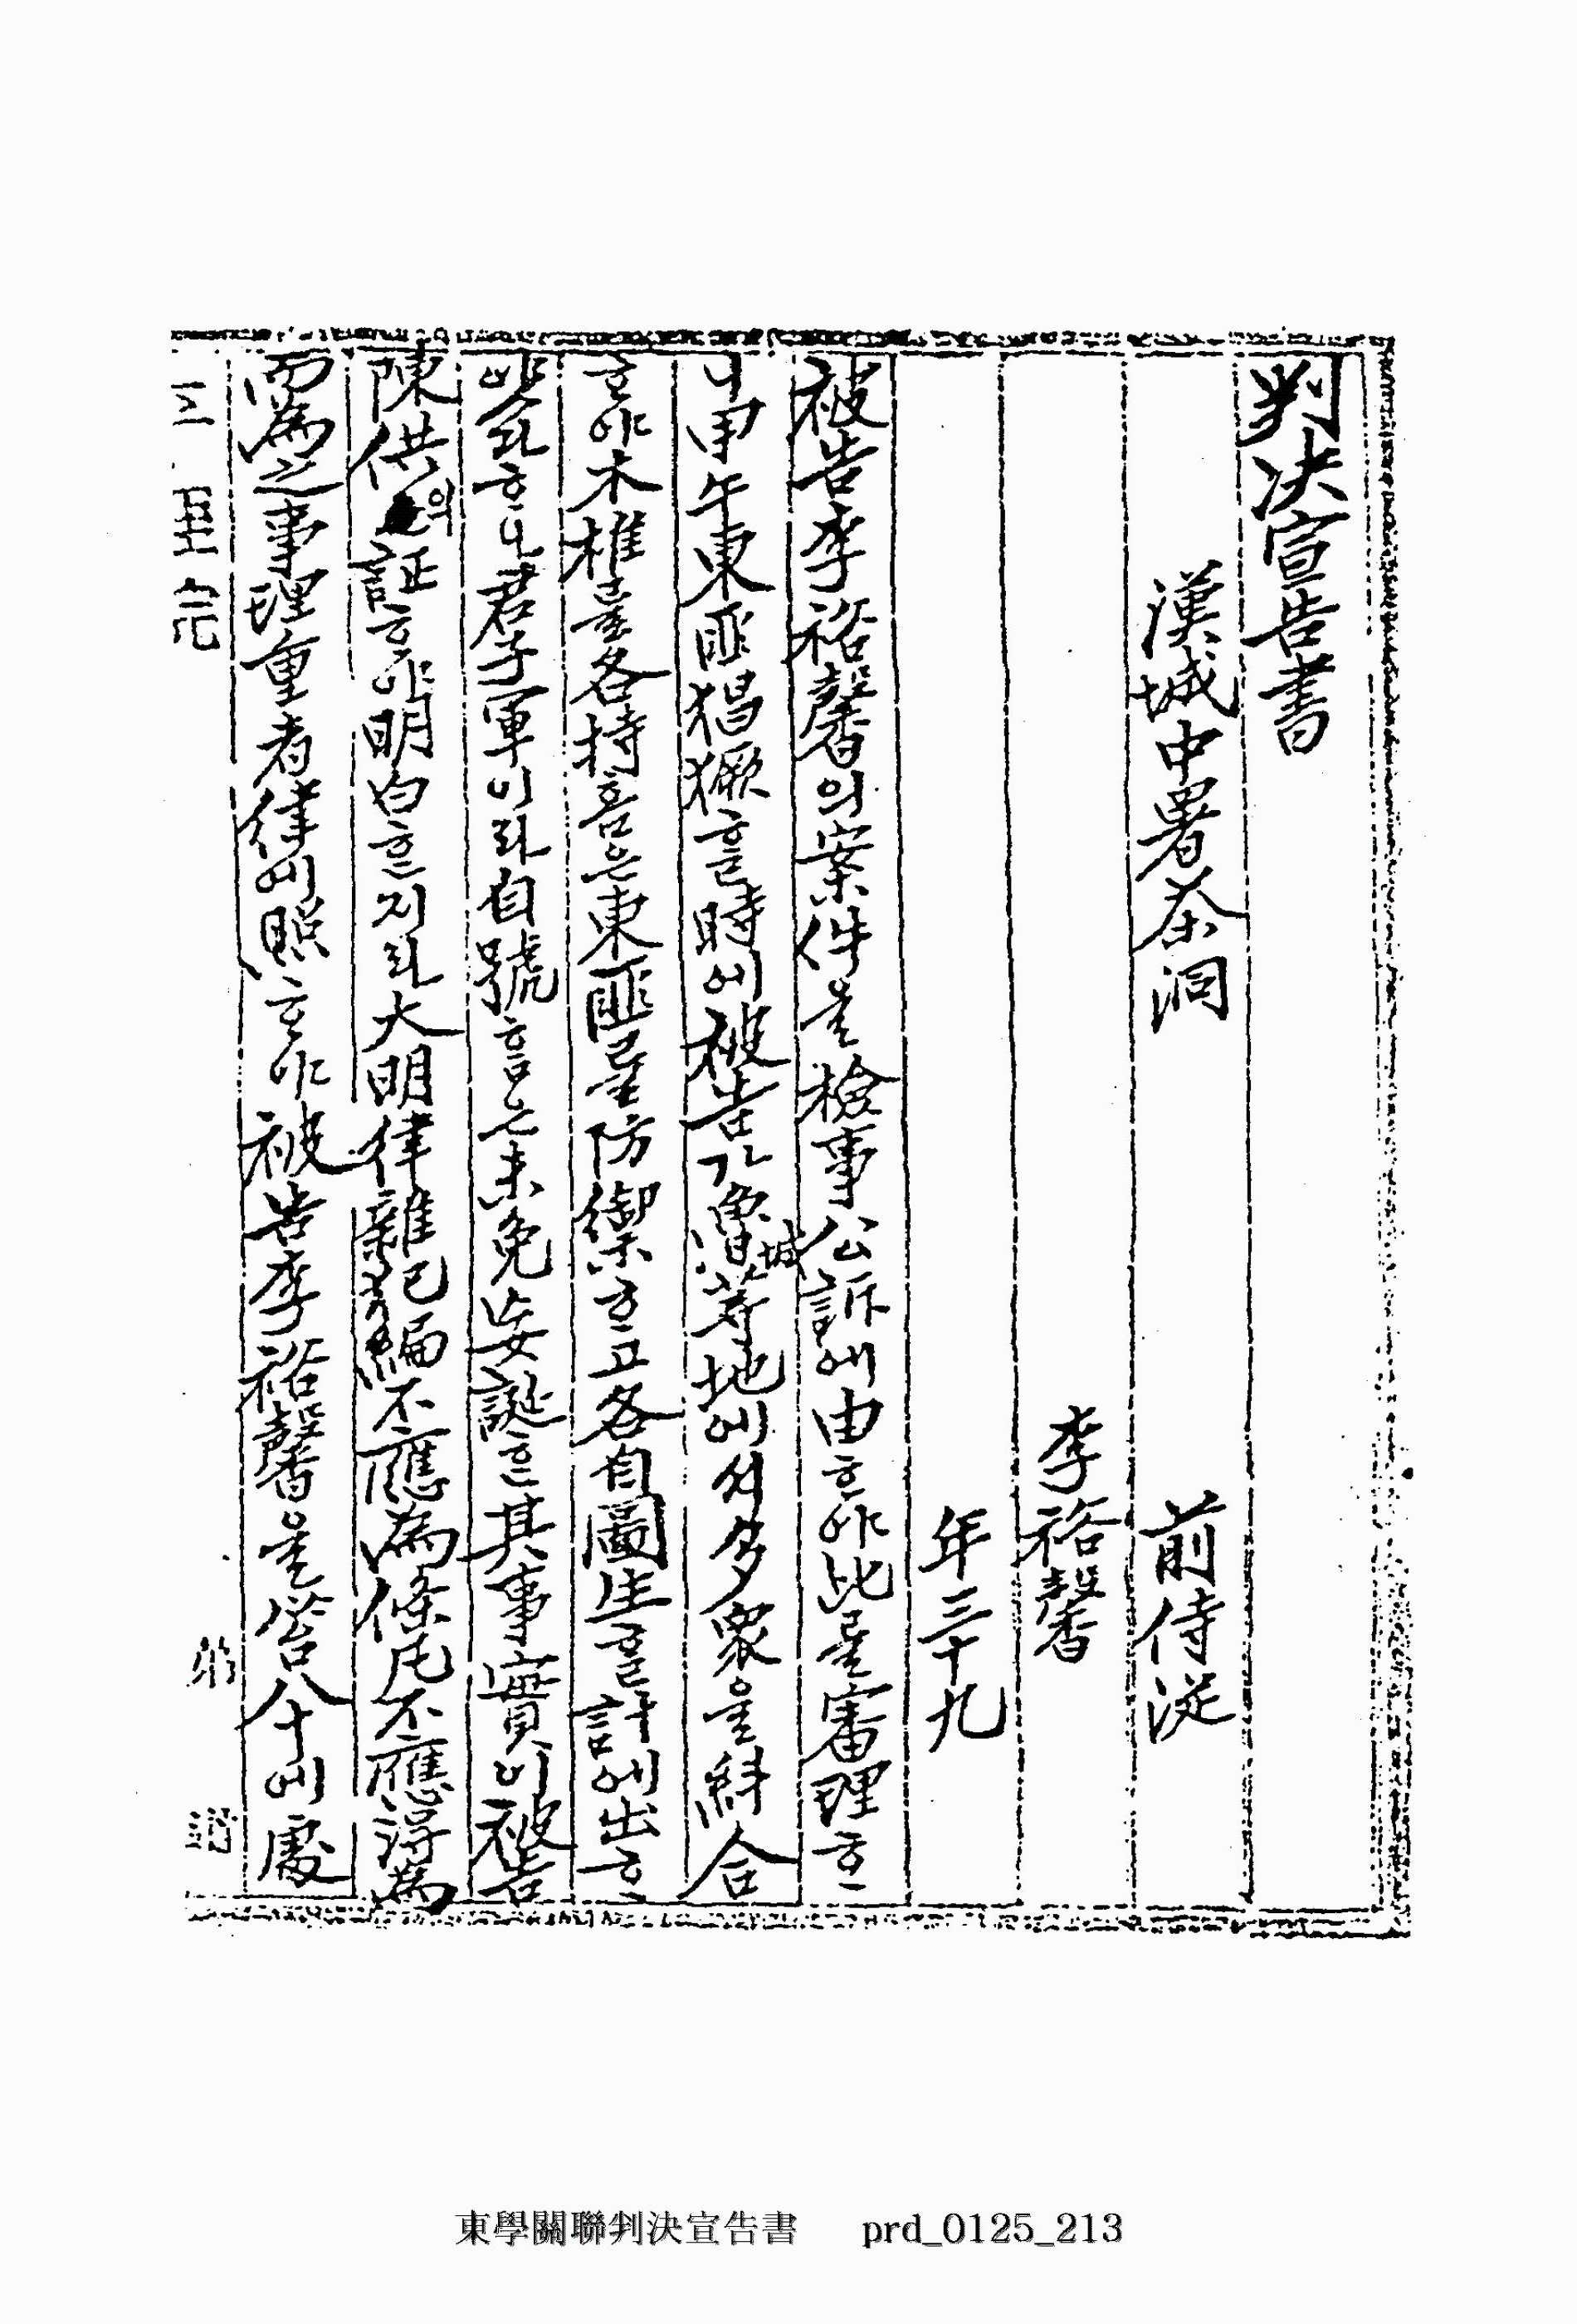 判決宣告書
漢城中署茶洞 前侍從
李裕馨
年三十九
被告李裕馨의案件을檢事公訴에由ᄒᆞ야此를審理ᄒᆞ
니甲午東匪猖獗ᄒᆞᆯ時에被告가魯城等地에셔多衆을糾合
ᄒᆞ야木椎를各持ᄒᆞᆷ은東匪를防禦ᄒᆞ고各自圖生ᄒᆞᆯ計에出ᄒᆞ
얏다ᄒᆞ나君子軍이라自號ᄒᆞᆷ은未免妄誕ᄒᆞᆫ其事實이被告
陳供의証ᄒᆞ야明白ᄒᆞᆫ지라大明律雜犯編不應爲條凡不應得爲
而爲之事理重者律에照ᄒᆞ야被告李裕馨을笞八十에處